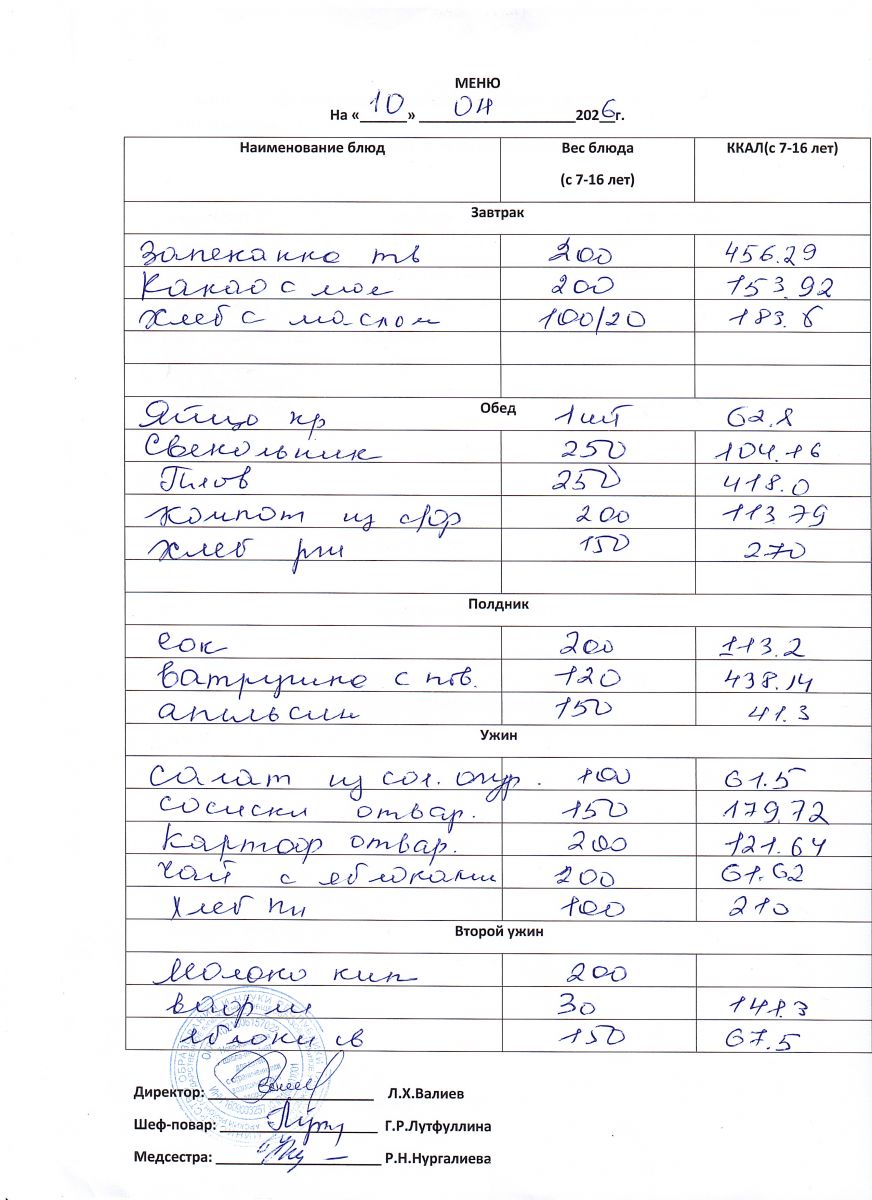 МЕНЮ
На «10» 04 2026г.
Наименование блюд Вес блюда (с 7-16 лет) ККАЛ(с 7-16 лет)
Завтрак
Запеканка тв 200 456.29
Какао с мол 200 153.92
Хлеб с маслом 100/20 183.6
Обед
Яйцо кр 1 шт 62.8
Свекольник 250 104.16
Плов 250 418.0
Компот из с/фр 200 113.79
Хлеб рж 150 270
Полдник
Сок 200 113.2
Ватрушка с тв. 120 438.14
апельсин 150 41.3
Ужин
Салат из сол. огур. 100 61.5
Сосиски отвар. 150 179.72
Картоф отвар. 200 121.64
Чай с яблоками 200 61.62
Хлеб пш 100 210
Второй ужин
Молоко кип 200
вафли 30 148.3
яблоки св 150 67.5
Директор: Л.Х.Валиев
Шеф-повар: Г.Р.Лутфуллина
Медсестра: Р.Н.Нургалиева